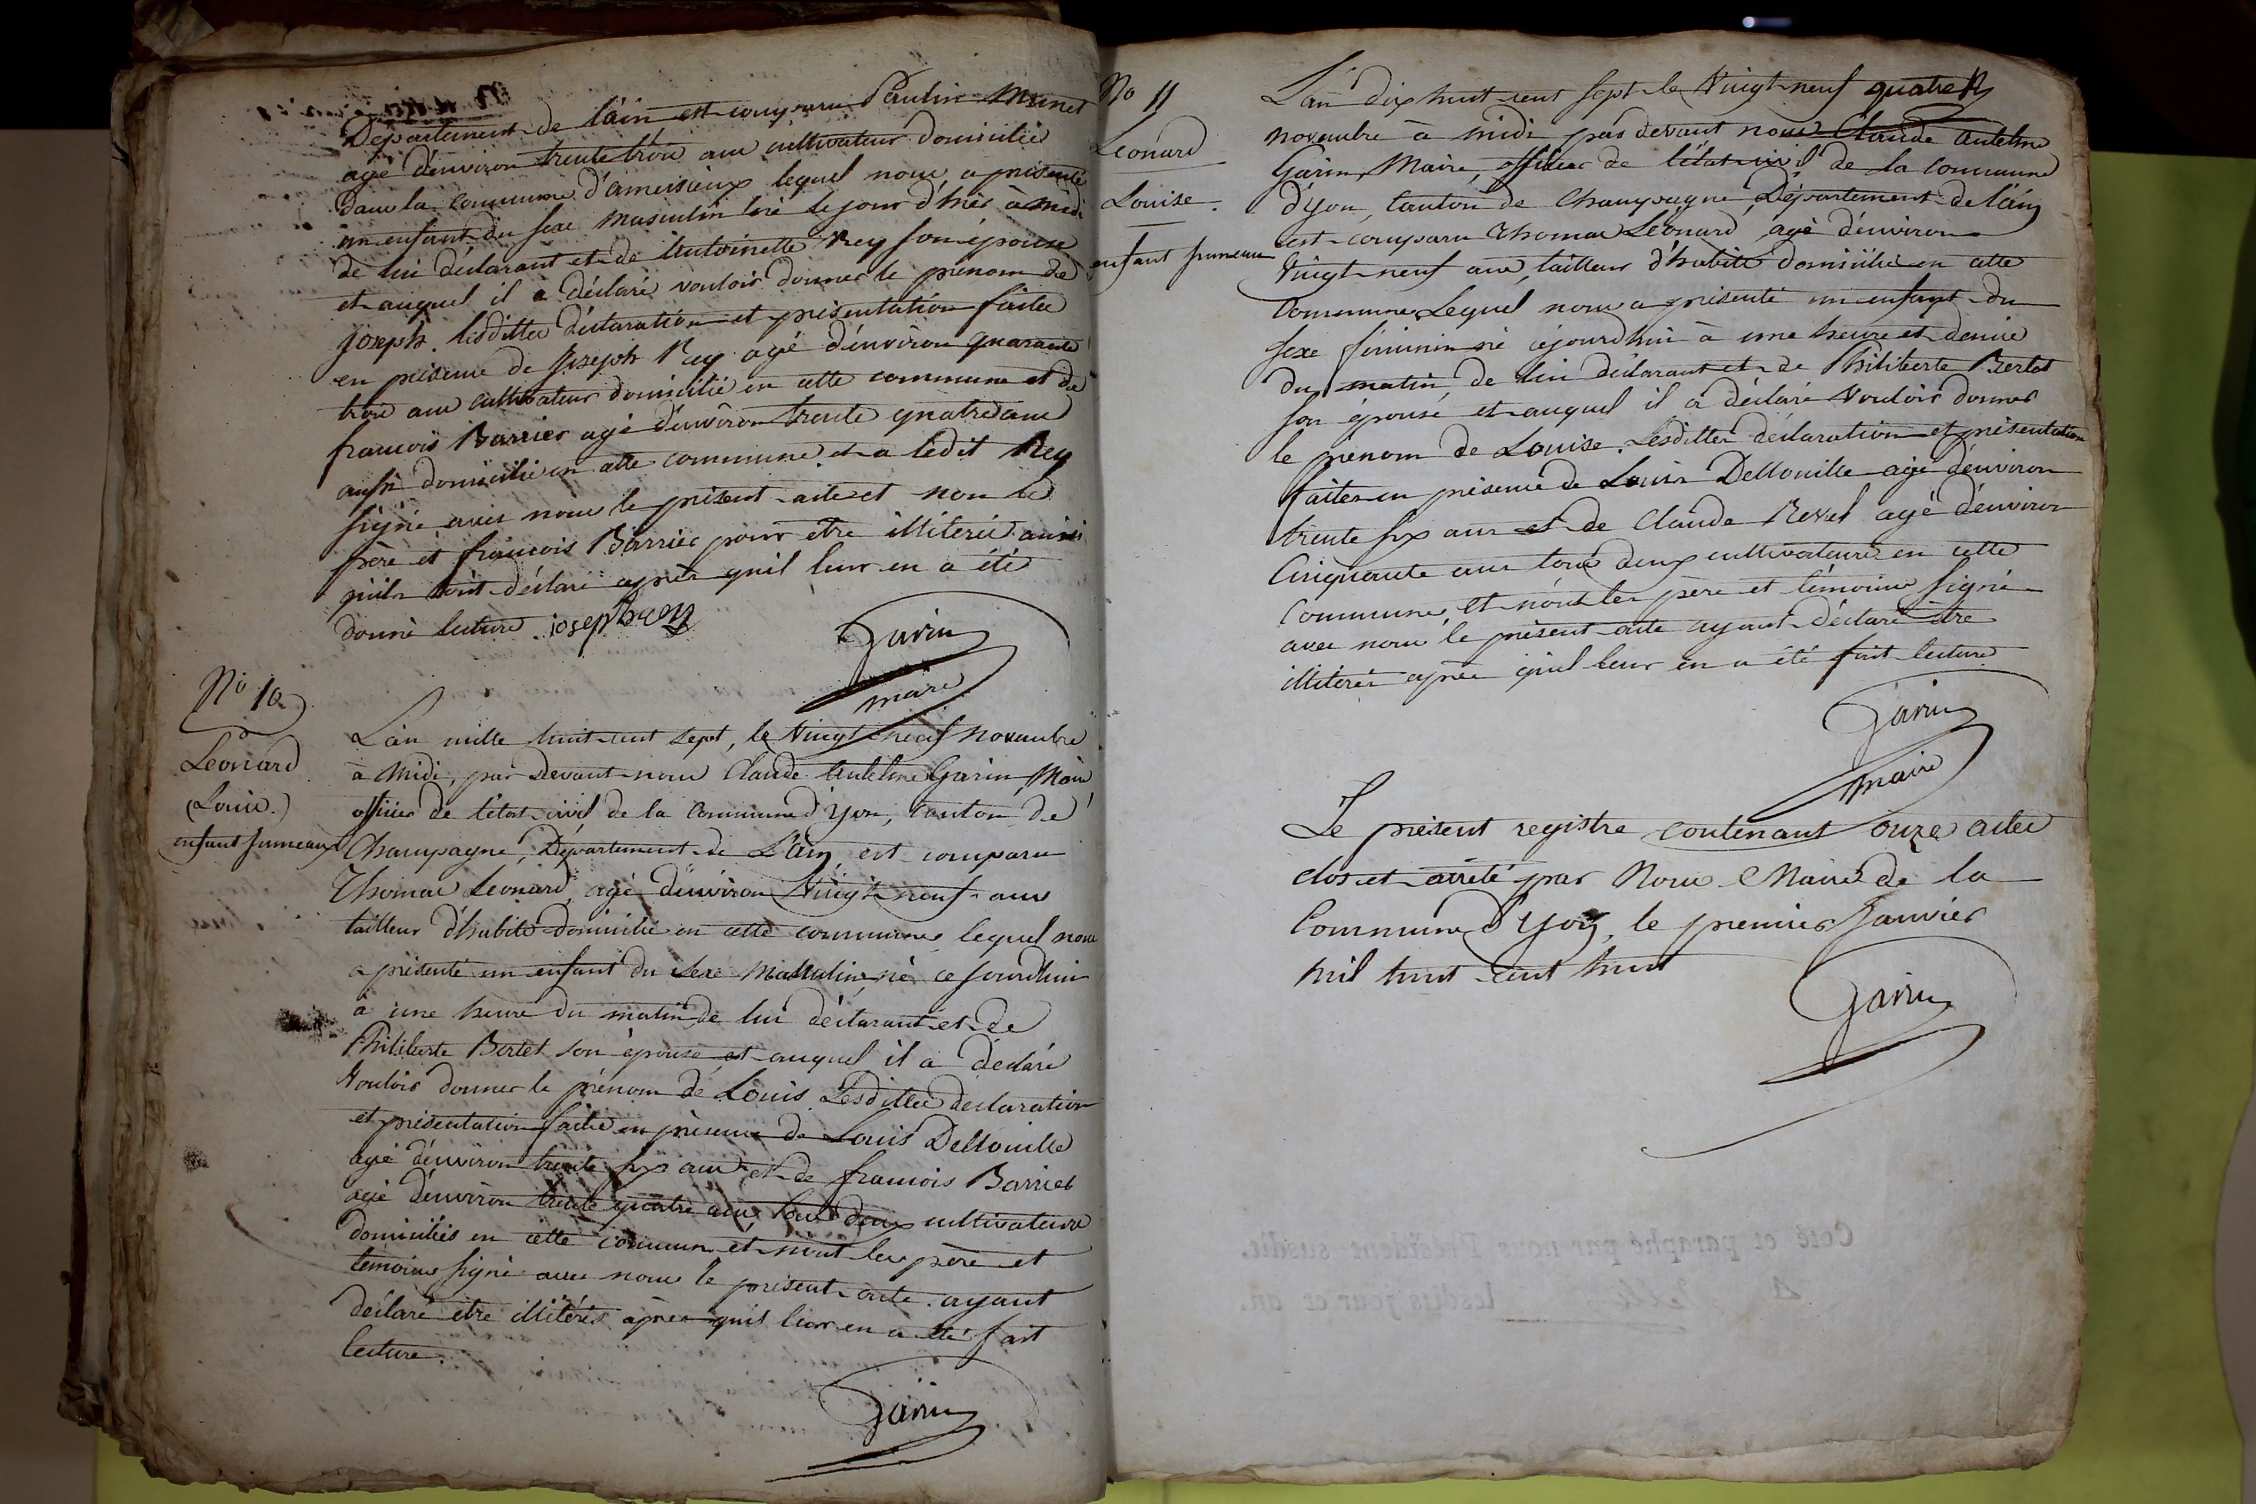 Département de l'ain est comparu Paulin Munet
agé d'environ trente trois ans cultivateur domicilié
dans la commune d'ameisieux lequel nous a présenté
un enfant du sexe masculin né le jour d'hier à midi
de lui déclarant et de Antoinette Rey son épouse
et auquel il a déclaré vouloir donner le prénom de
joseph. lesdittes déclaration et présentation faites
en présence de Joseph Rey agé d'environ quarante
trois ans cultivateur domicilié en cette commune et de
francois Barrier agé d'environ trente quatre ans
aussi domicilié en cette commune et a ledit Rey
signé avec nous le présent acte et non le
père et francois Barrier pour être illitérés ainsi
qu'ils l'ont déclaré après qu'il leur en a été
donné lecture. ioseph rey
Garin
maire
No 10
Leonard
(Louis.)
enfant jumeaux
L'an mille huit cent sept, le Vingt neuf novembre
à Midi, par devant nous Claude Antelme Garin, Maire
officier de l'état civil de la commune d'Yon, canton de
Champagne, Département de L'Ain, est comparu
Thomas Leonard, agé d'environ Vingt neuf ans
tailleur d'habits domicilié en cette commune, lequel nous
a présenté un enfant du sexe Masculin, né ce jourdhui
à une heure du matin de lui déclarant et de
Philiberte Bertet son épouse, et auquel il a déclaré
Vouloir donner le prénom de Louis. Lesdittes déclaration
et présentation faite en présence de Louis Dellouille
agé d'environ trente six ans et de francois Barrier
agé d'environ trente quatre ans, tous deux cultivateurs
domiciliés en cette commune et n'ont les père et
témoins signé avec nous le présent acte. ayant
déclaré être illitérés après qu'il leur en a été fait
lecture.
Garin
No 11
Leonard
Louise.
enfant jumeaux
L'an dix huit cent sept le Vingt neuf
novembre à midi par devant nous Claude antelme
Garin, Maire, officier de l'état civil de la commune
d'yon, canton de Champagne, Département de l'ain
est comparu Thomas Léonard, agé d'environ
Vingt neuf ans, tailleur d'habits domicilié en cette
Commune, Lequel nous a présenté un enfant du
sexe féminin né cejourdhui à une heure et demie
du matin, de lui déclarant et de Philiberte Bertet
son épouse et auquel il a déclaré Vouloir donner
le prénom de Louise. Lesdittes déclaration et présentation
faites en présence de Louis Dellouille agé d'environ
trente six ans et de Claude Revel agé d'environ
Cinquante ans tous deux cultivateurs en cette
Commune, et n'ont les père et témoins signé
avec nous le présent acte ayant déclaré être
illitérés après qu'il leur en a été fait lecture
Garin
maire
Le présent registre contenant onze actes
clos et arrêté par Nous Maire de la
Commune d'Yon, le premier Janvier
mil huit cent huit
Garin